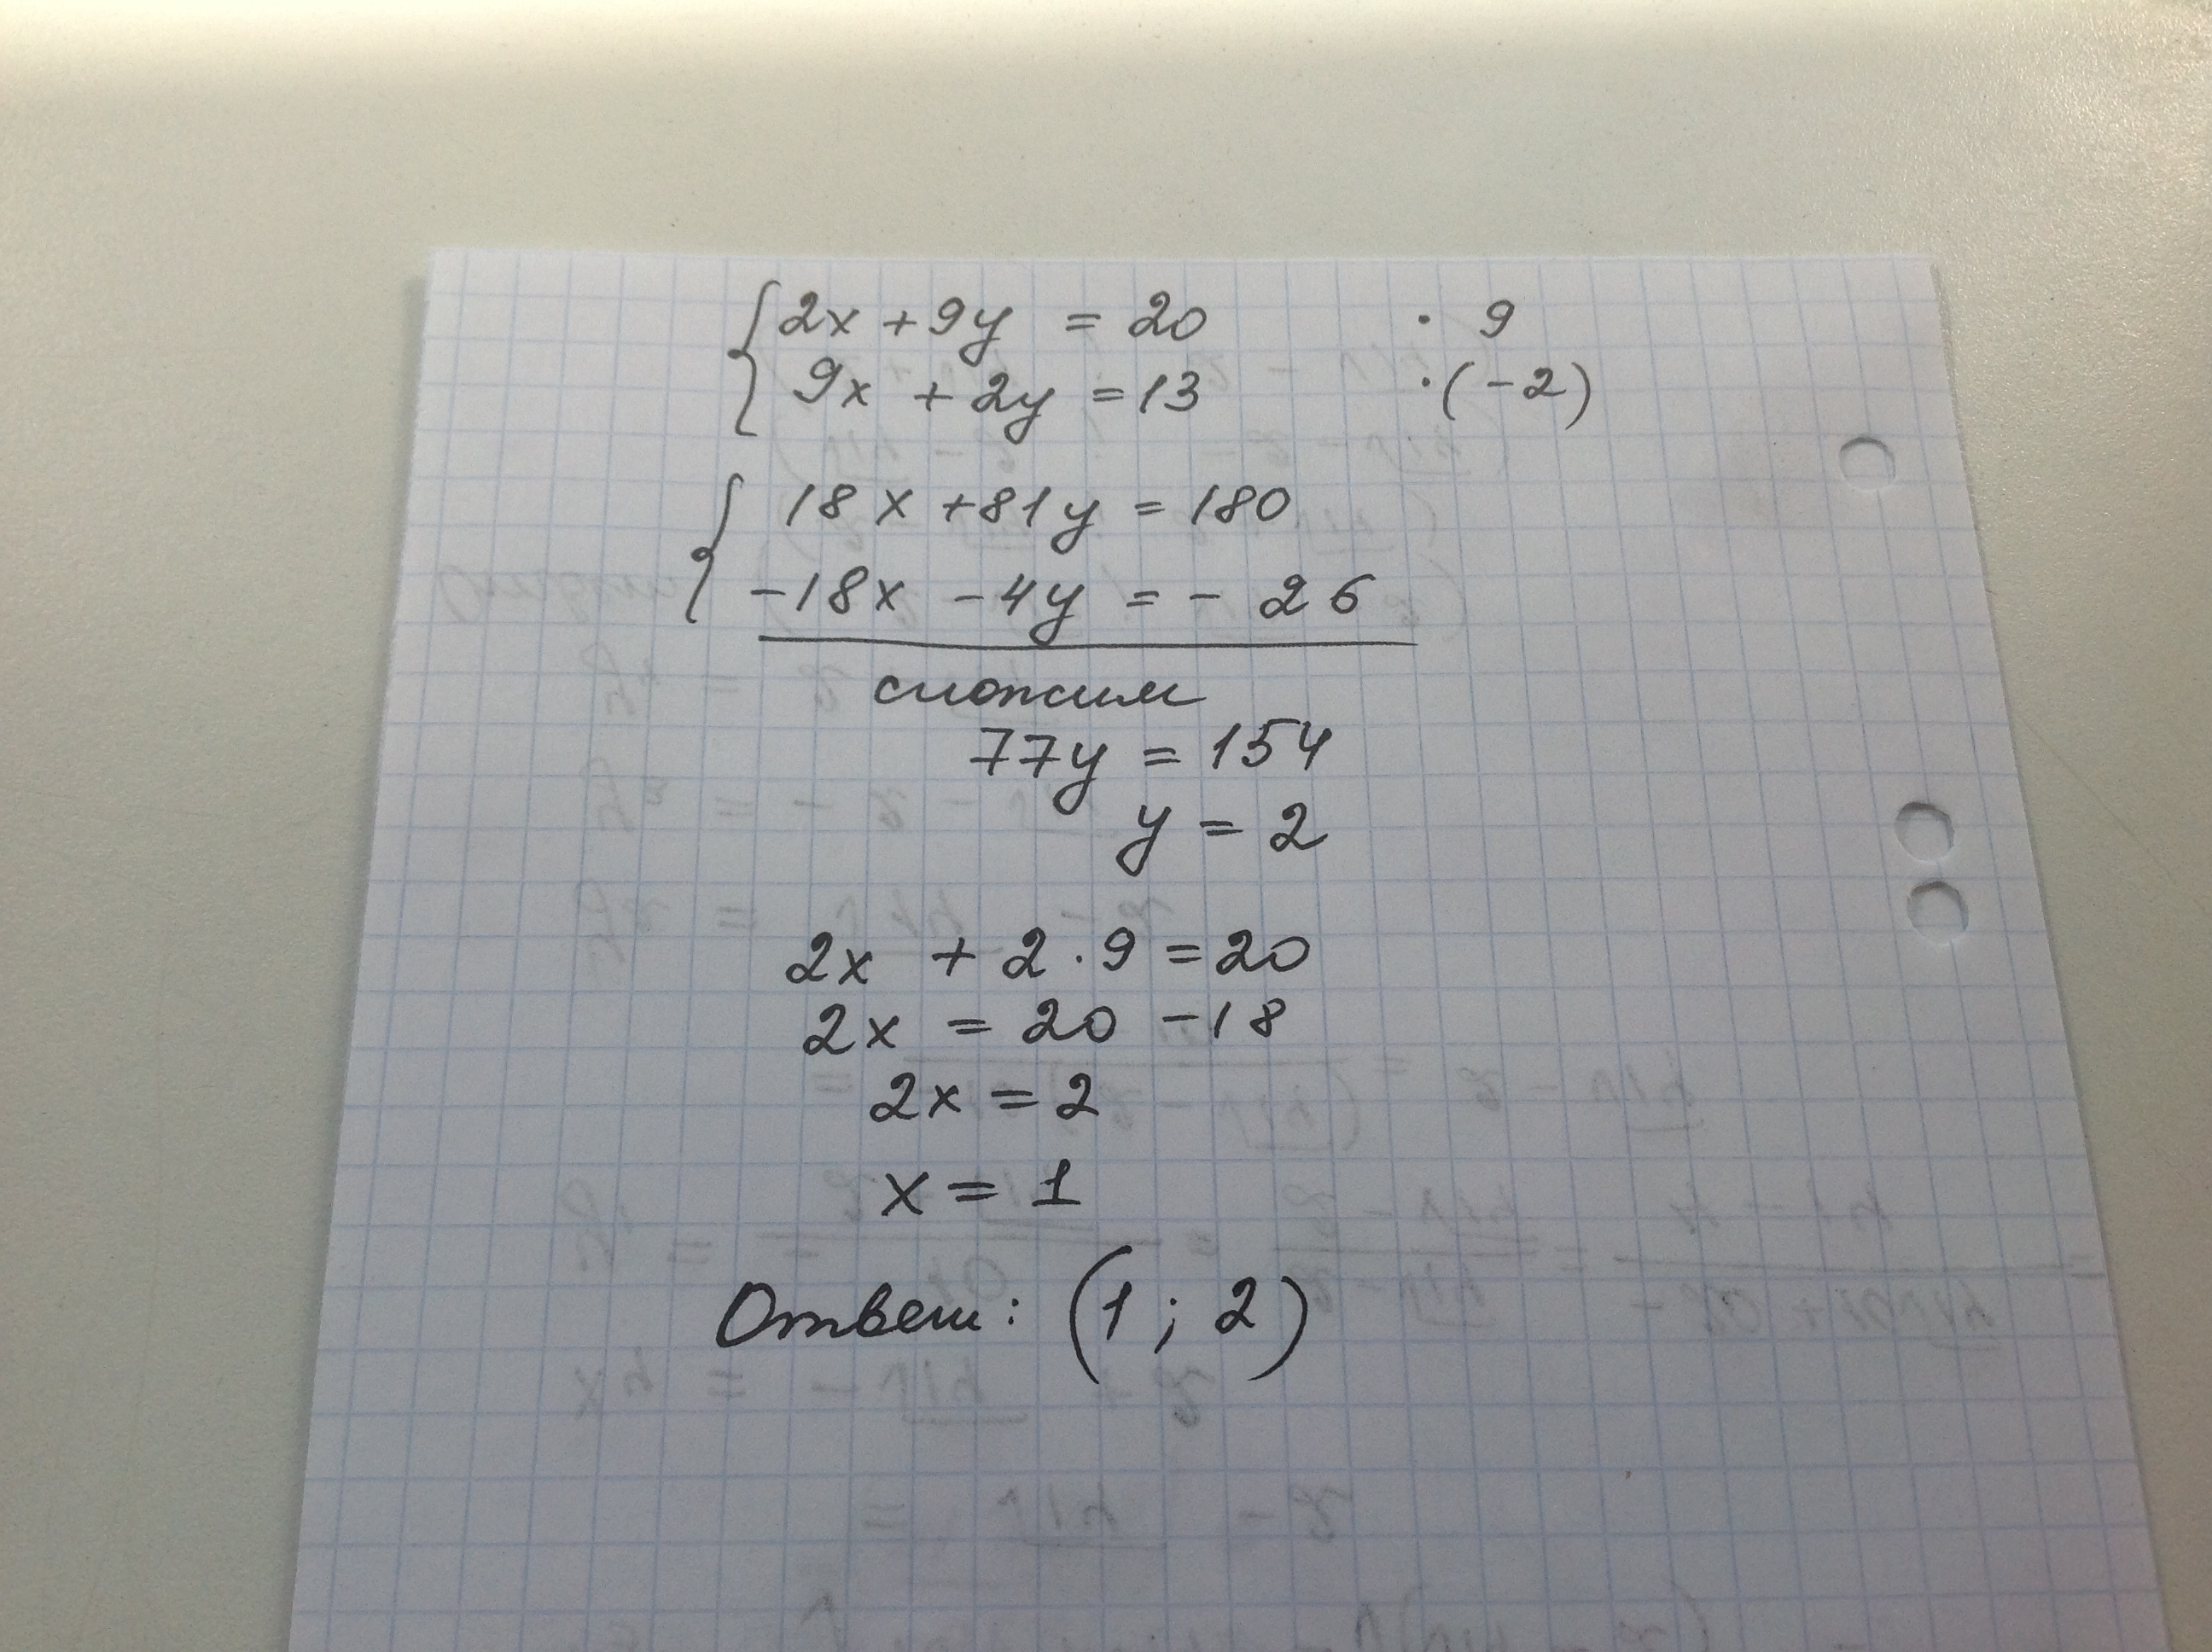 2x + 9y = 20 · 9
9x + 2y = 13 · (-2)
18x + 81y = 180
-18x - 4y = - 26
сложим
77y = 154
y = 2
2x + 2 · 9 = 20
2x = 20 - 18
2x = 2
x = 1
Ответ: (1 ; 2)